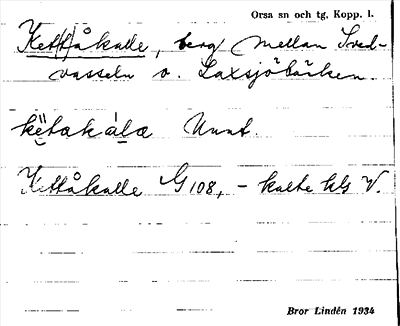 Orsa sn och tg, Kopp. l.
Ket(t)åkalle, berg mellan Sved-
vasseln o. Laxsjöbäcken.
Uunt.
Kettåkalle G 108, – kalte kls V.
Bror Lindén 1934